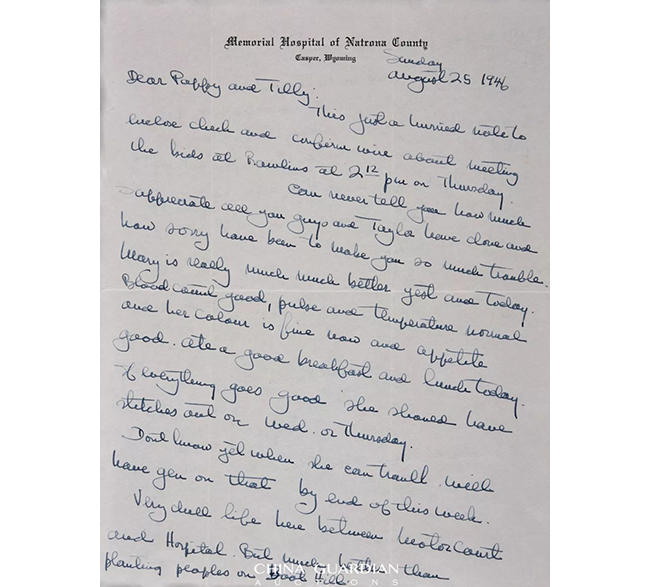 Memorial Hospital of Natrona County
Casper, Wyoming
Sunday
August 25 1946
Dear Pappy and Tilly:
This just a hurried note to
enclose check and confirm wire about meeting
the kids at Rawlins at 2 12 pm on Thursday.
Can never tell you how much
I appreciate all you guys and Taylor have done and
how sorry have been to make you so much trouble.
Mary is really much much better yest and today.
Blood count good, pulse and temperature normal
and her colour is fine now and appetite
good. Ate a good breakfast and lunch today.
If everything goes good she should have
stitches out on Wed. or Thursday.
Dont know yet when she can travll. Will
have gen on that by end of this week.
Very dull life here between Motor Court
and Hospital. But much better than
planting peoples on Boot Hill.
CHINA GUARDIAN
AUCTIONS